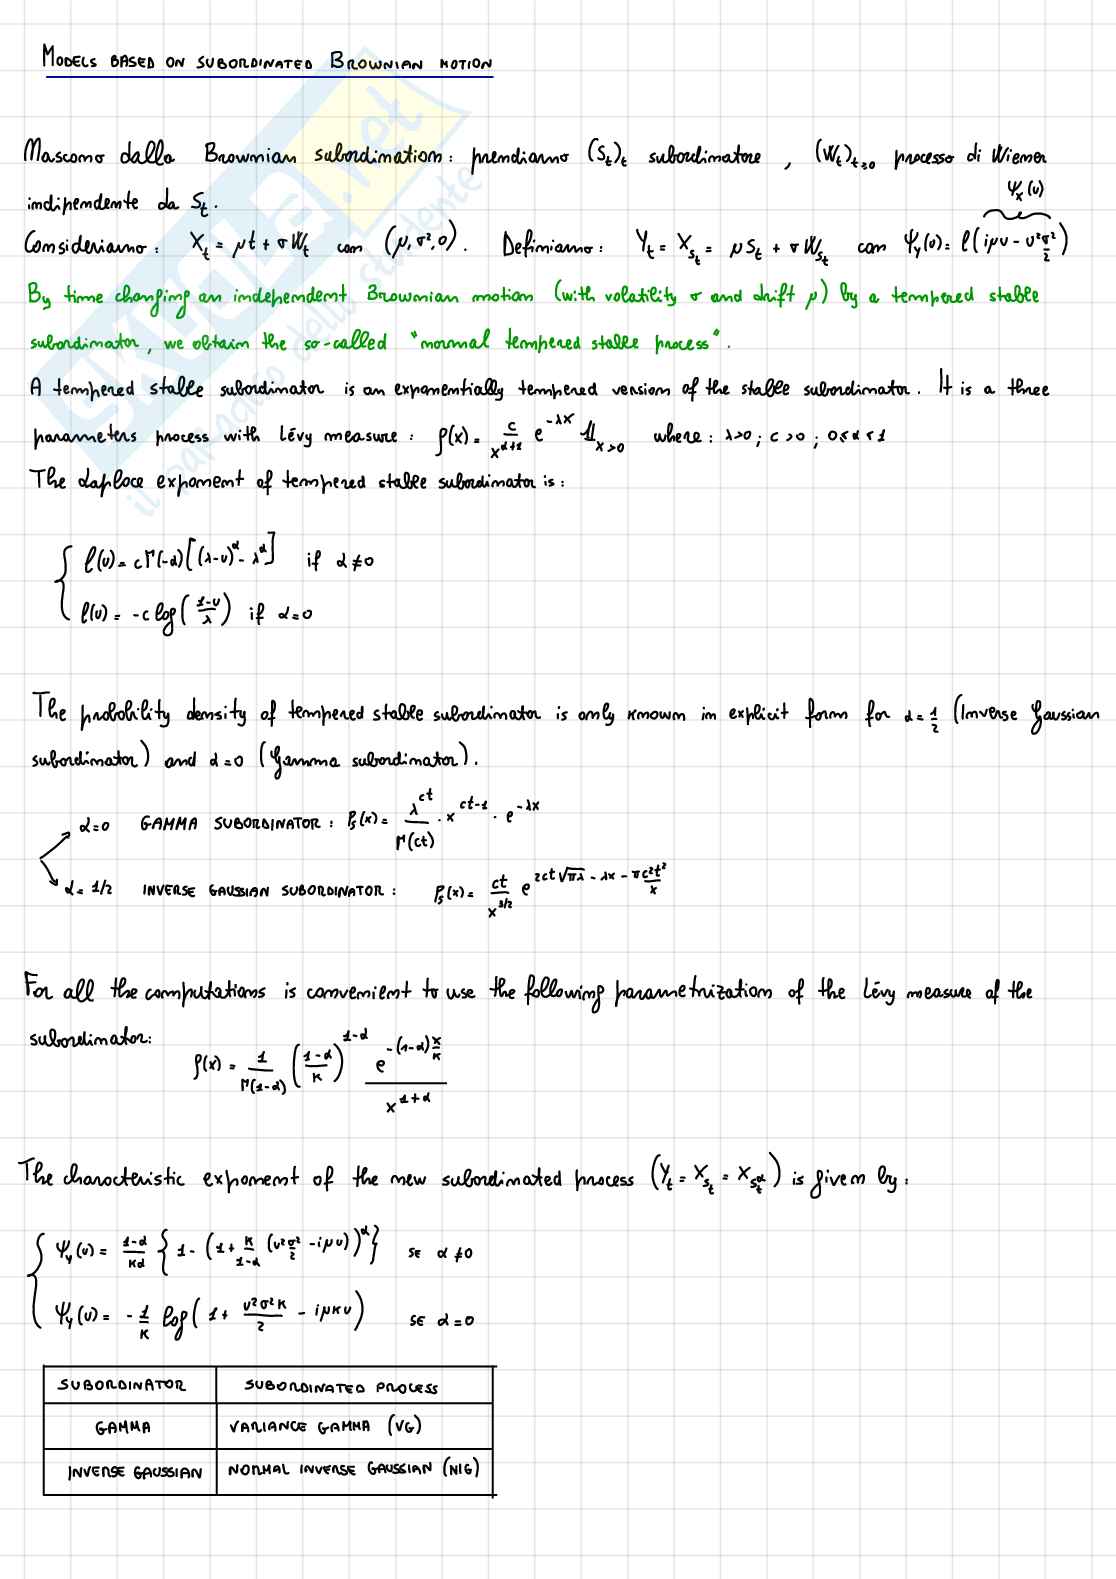 MODELS BASED ON SUBORDINATED BROWNIAN MOTION
Nascono dalla Brownian subordination: prendiamo (S_t)_t subordinatore, (W_t)_{t≥0} processo di Wiener
indipendente da S_t.
ψ_x(u)
Consideriamo: X_t = μt + σW_t con (μ, σ², 0). Definiamo: Y_t = X_{S_t} = μS_t + σW_{S_t} con ψ_Y(u) = ℓ(iμu - u²σ²/2)
By time changing an independent Brownian motion (with volatility σ and drift μ) by a tempered stable
subordinator, we obtain the so-called "normal tempered stable process".
A tempered stable subordinator is an exponentially tempered version of the stable subordinator. It is a three
parameters process with Lévy measure: ρ(x) = c/x^{α+1} e^{-λx} 𝟙_{x>0} where: λ>0; c>0; 0≤α<1
The Laplace exponent of tempered stable subordinator is:
ℓ(u) = cΓ(-α)[(λ-u)^α - λ^α] if α≠0
ℓ(u) = -c log(1-u/λ) if α=0
The probability density of tempered stable subordinator is only known in explicit form for α = 1/2 (Inverse Gaussian
subordinator) and α=0 (Gamma subordinator).
α=0 GAMMA SUBORDINATOR: P_S(x) = λ^{ct}/Γ(ct) · x^{ct-1} · e^{-λx}
α=1/2 INVERSE GAUSSIAN SUBORDINATOR: P_S(x) = ct/x^{3/2} e^{2ct√(πλ) - λx - πc²t²/x}
For all the computations is convenient to use the following parametrization of the Lévy measure of the
subordinator:
ρ(x) = 1/Γ(1-α) ((1-α)/κ)^{1-α} e^{-(1-α)x/κ}/x^{1+α}
The characteristic exponent of the new subordinated process (Y_t = X_{S_t} = X_{S_t^α}) is given by:
ψ_Y(u) = (1-α)/(κα) {1 - (1 + κ/(1-α) (u²σ²/2 - iμu))^α} SE α≠0
ψ_Y(u) = -1/κ log(1 + u²σ²κ/2 - iμκu) SE α=0
SUBORDINATOR SUBORDINATED PROCESS
GAMMA VARIANCE GAMMA (VG)
INVERSE GAUSSIAN NORMAL INVERSE GAUSSIAN (NIG)
SKUOLA.net
il paradiso dello studente